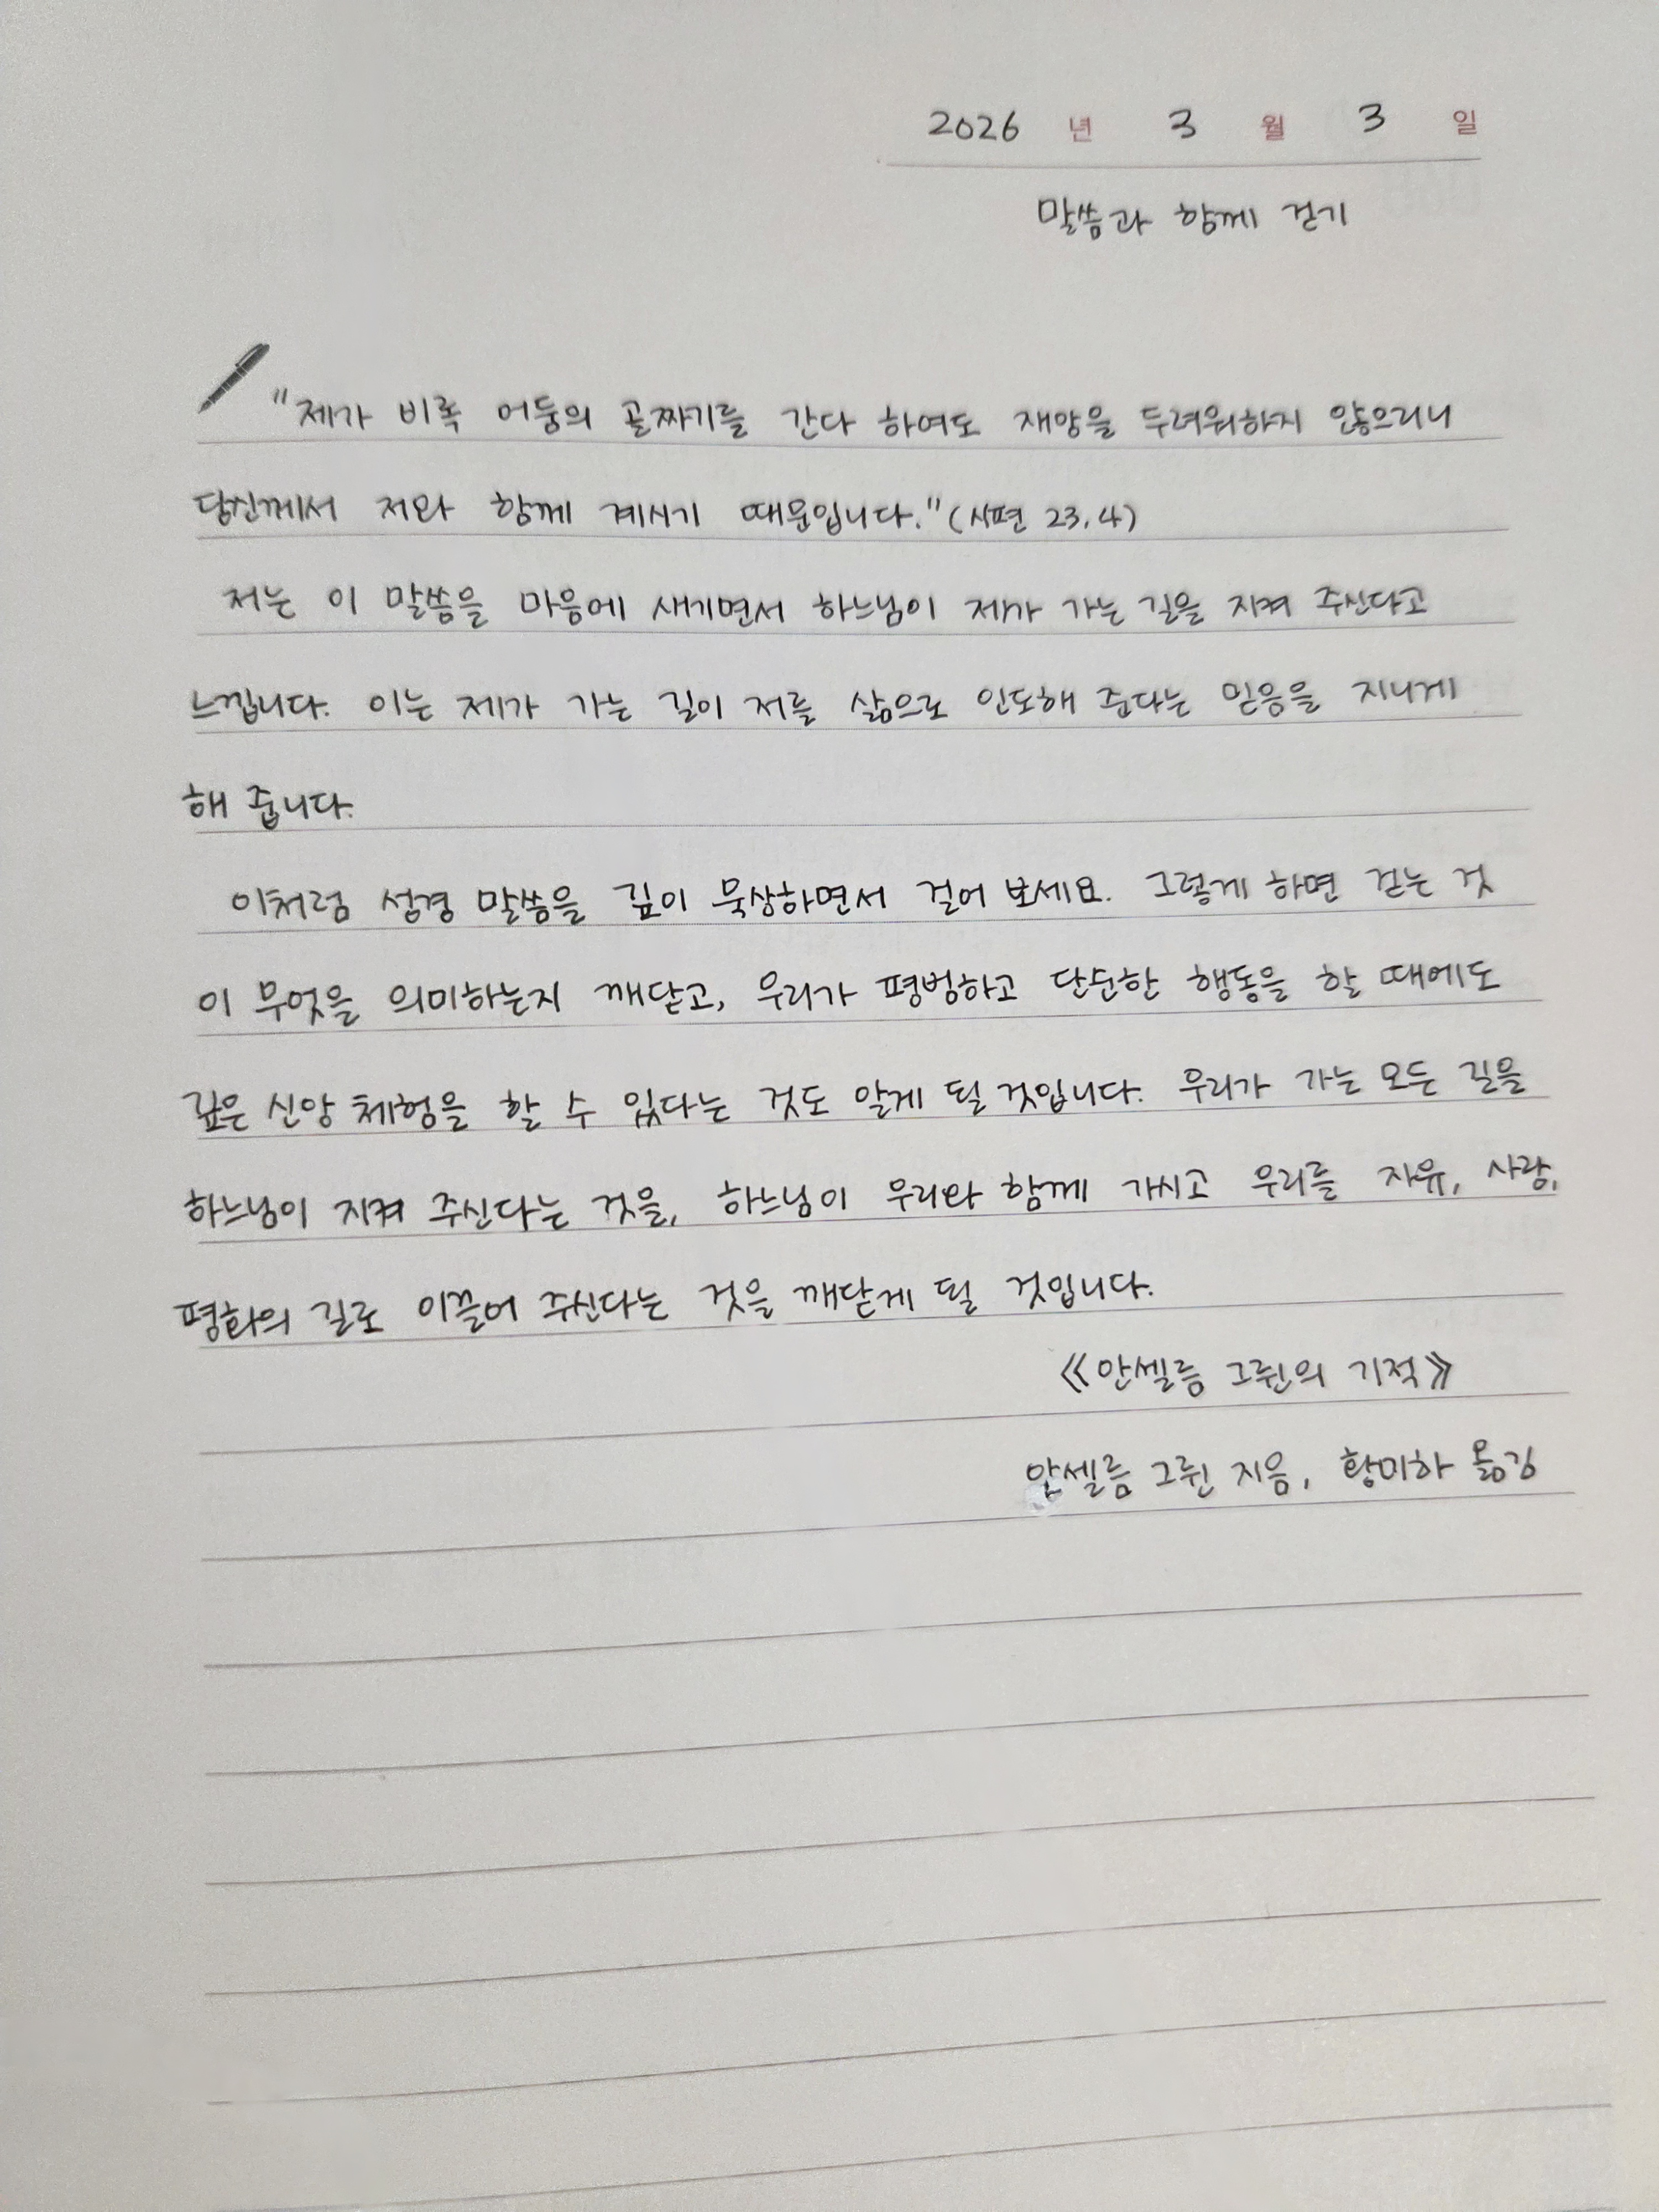 2026 년 3 월 3 일
말씀과 함께 걷기
"제가 비록 어둠의 골짜기를 간다 하여도 재앙을 두려워하지 않으리니
당신께서 저와 함께 계시기 때문입니다." (시편 23,4)
저는 이 말씀을 마음에 새기면서 하느님이 제가 가는 길을 지켜 주신다고
느낍니다. 이는 제가 가는 길이 저를 삶으로 인도해 준다는 믿음을 지니게
해 줍니다.
이처럼 성경 말씀을 깊이 묵상하면서 걸어 보세요. 그렇게 하면 걷는 것
이 무엇을 의미하는지 깨닫고, 우리가 평범하고 단순한 행동을 할 때에도
깊은 신앙 체험을 할 수 있다는 것도 알게 될 것입니다. 우리가 가는 모든 길을
하느님이 지켜 주신다는 것을, 하느님이 우리와 함께 가시고 우리를 자유, 사랑,
평화의 길로 이끌어 주신다는 것을 깨닫게 될 것입니다.
《안셀름 그륀의 기적》
안셀름 그륀 지음, 황미하 옮김